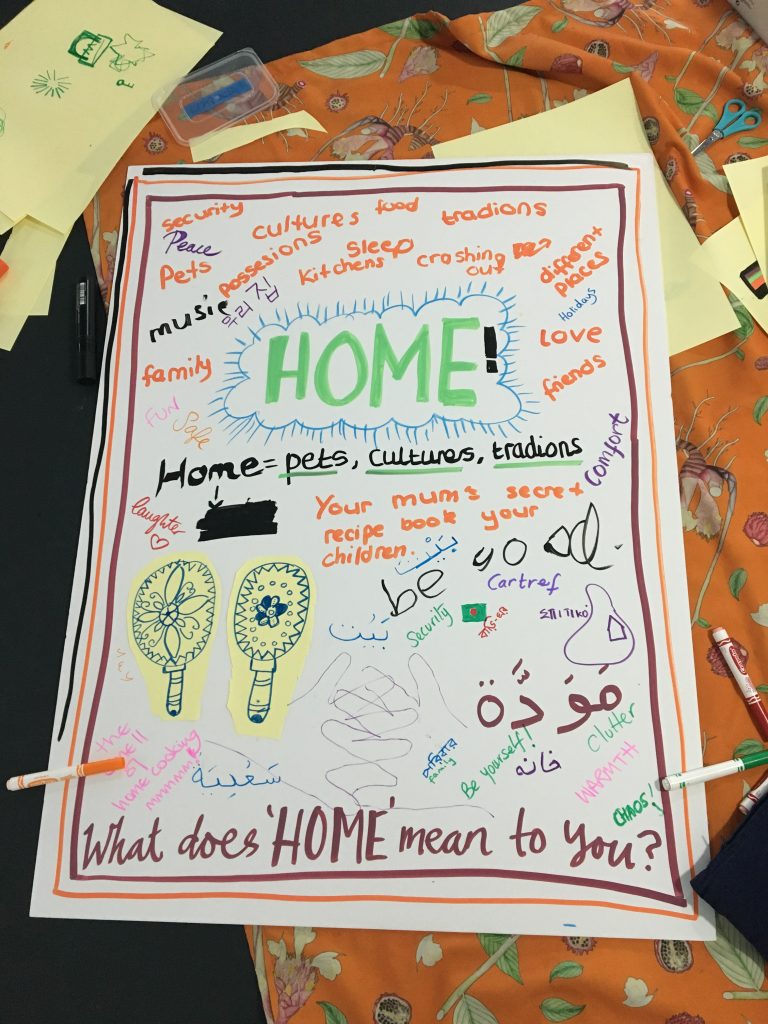 security
cultures
food
tradions
Peace
Pets
possesions
Kitchens
Sleep
crashing
out
different
places
music
우리 집
Holidays
HOME!
Love
family
friends
FUN
Safe
Home = pets, cultures, tradions
comfort
laughter
Your mum's secret
recipe book your
children.
بَيْت
be
Cartref
Security
σπιτικό
بَيْت
مَوَدَّة
the
smell
of
home cooking
mmmmm!
شَعْبِيَة
পরিবার
family
Be yourself!
خانه
Clutter
WARMTH
CHAOS!
What does 'HOME' mean to you?